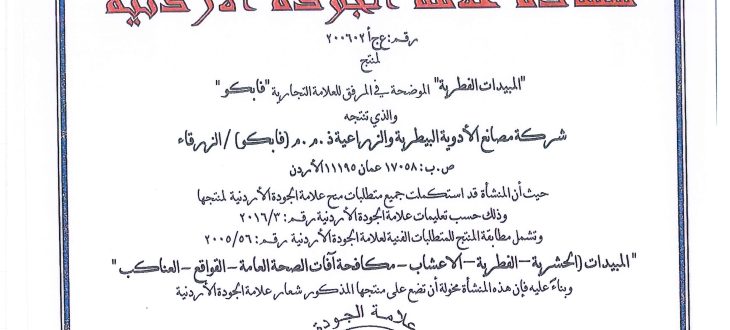 شهادة علامة الجودة الأردنية
رقم: ع ج أ ٢٠٠٦٠٢
لمنتج
"المبيدات الفطرية" الموضحة في المرفق للعلامة التجارية "فابكو"
والذي تنتجه
شركة مصانع الأدوية البيطرية والزراعية ذ.م.م (فابكو) / الزرقاء
ص.ب: ١٧٠٥٨ عمان ١١١٩٥ الأردن
حيث أن المنشأة قد استكملت جميع متطلبات منح علامة الجودة الأردنية لمنتجها
وذلك حسب تعليمات علامة الجودة الأردنية رقم: ٢٠١٦/٣
وتشمل مطابقة المنتج للمتطلبات الفنية لعلامة الجودة الأردنية رقم: ٢٠٠٥/٥٦
"المبيدات (الحشرية - الفطرية - الاعشاب - مكافحة آفات الصحة العامة - القواقع - العناكب"
وبناءً عليه فإن هذه المنشأة مخولة أن تضع على منتجها المذكور شعار علامة الجودة الأردنية
علامة الجودة